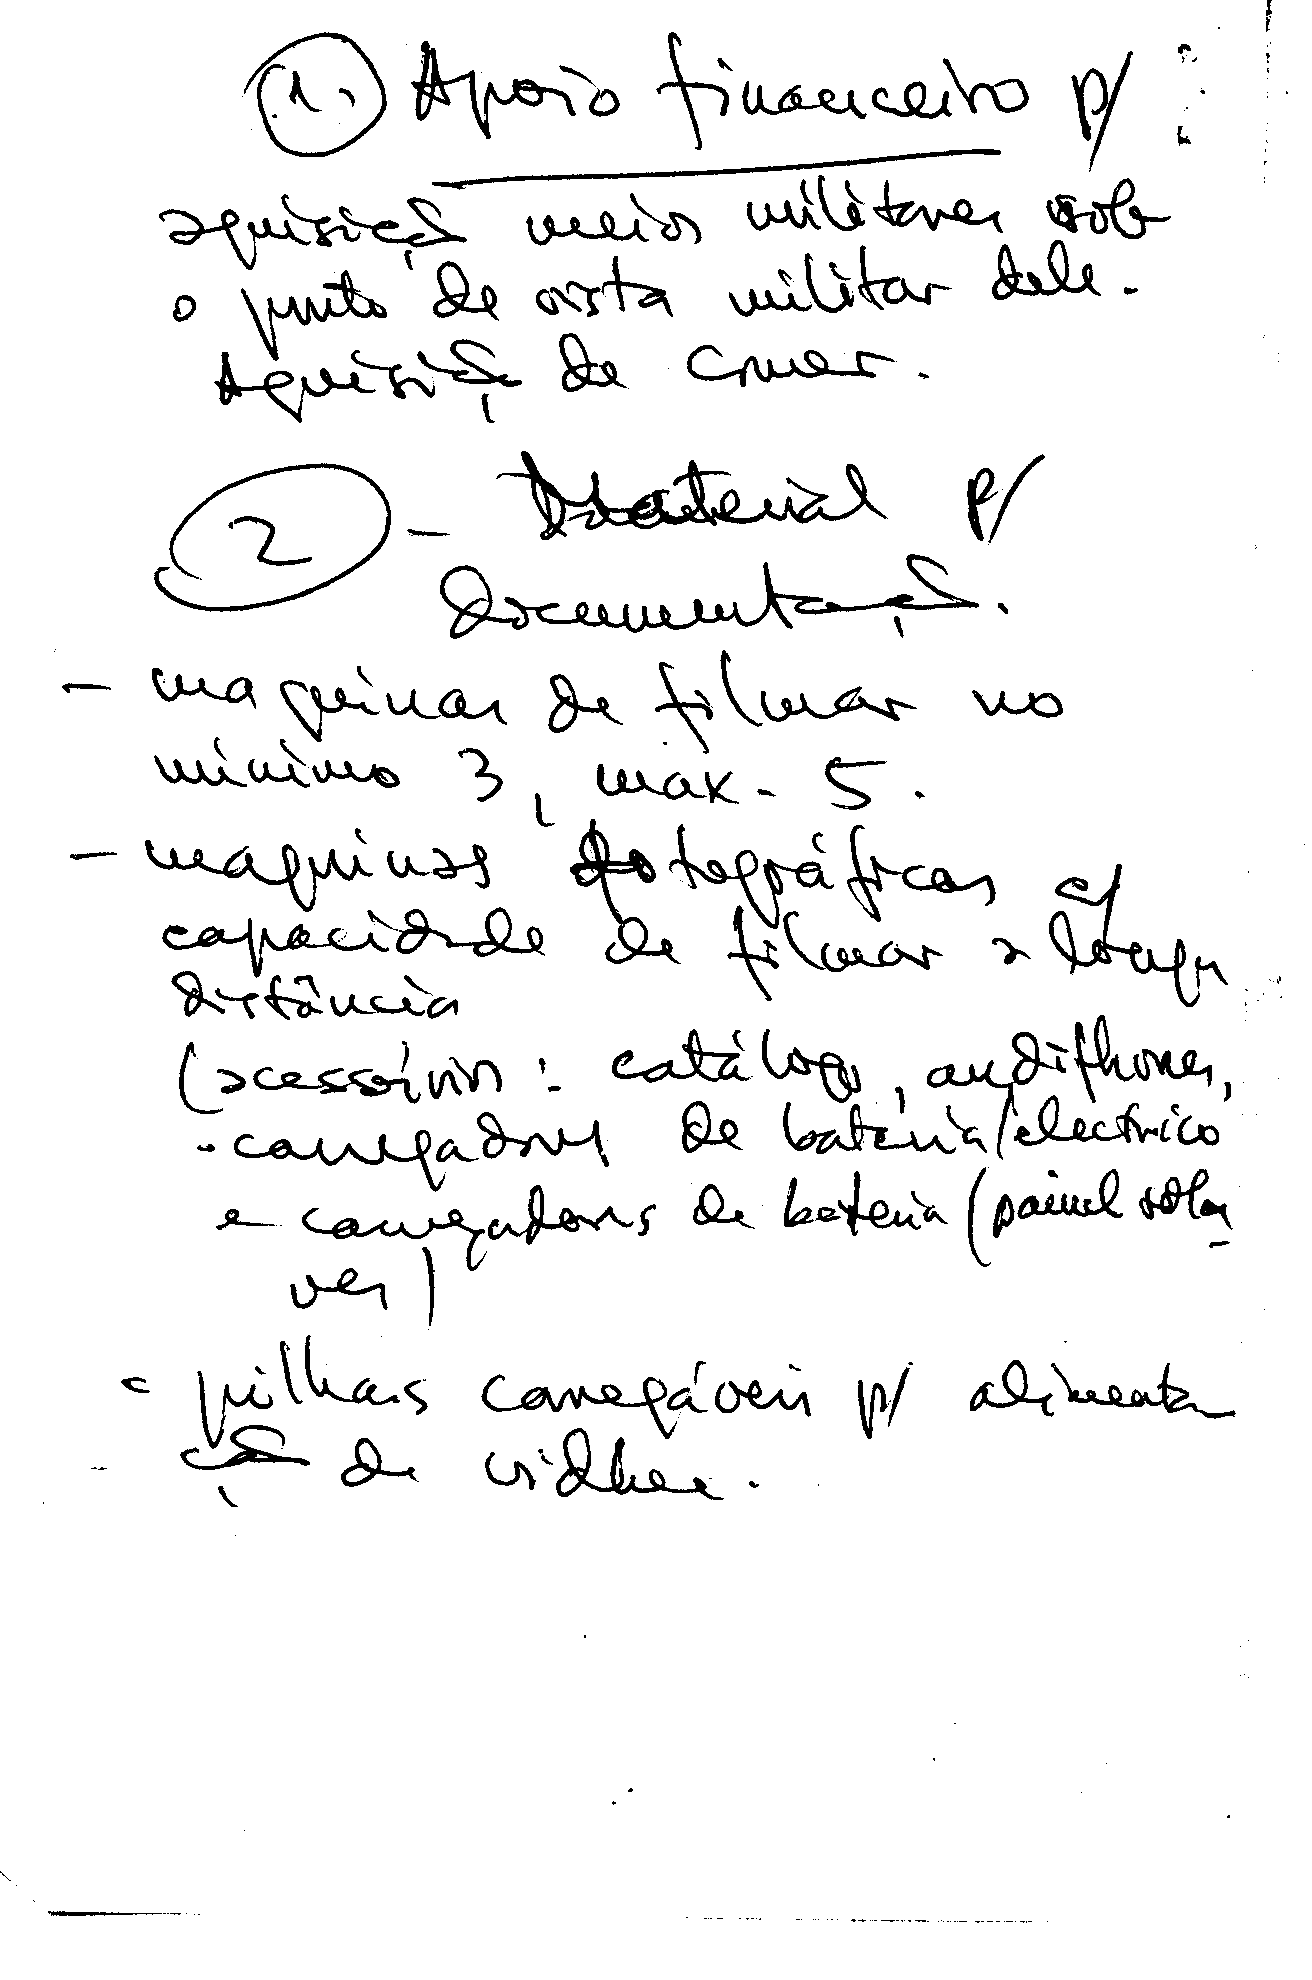 1. Apoio financeiro p/ :
aquisição meios militares sob
o ponto de vista militar dele.
Aquisição de comer.
2 - Material p/
documentação.
- maquinas de filmar no
minimo 3, max. 5.
- maquinas fotográficas c/
capacidade de filmar a longa
distância
(acessórios : catálogo, audiphones,
- carregadores de bateria/electrico
e carregadores de bateria (painel solar
ver)
- pilhas carregáveis p/ alimenta
ção de